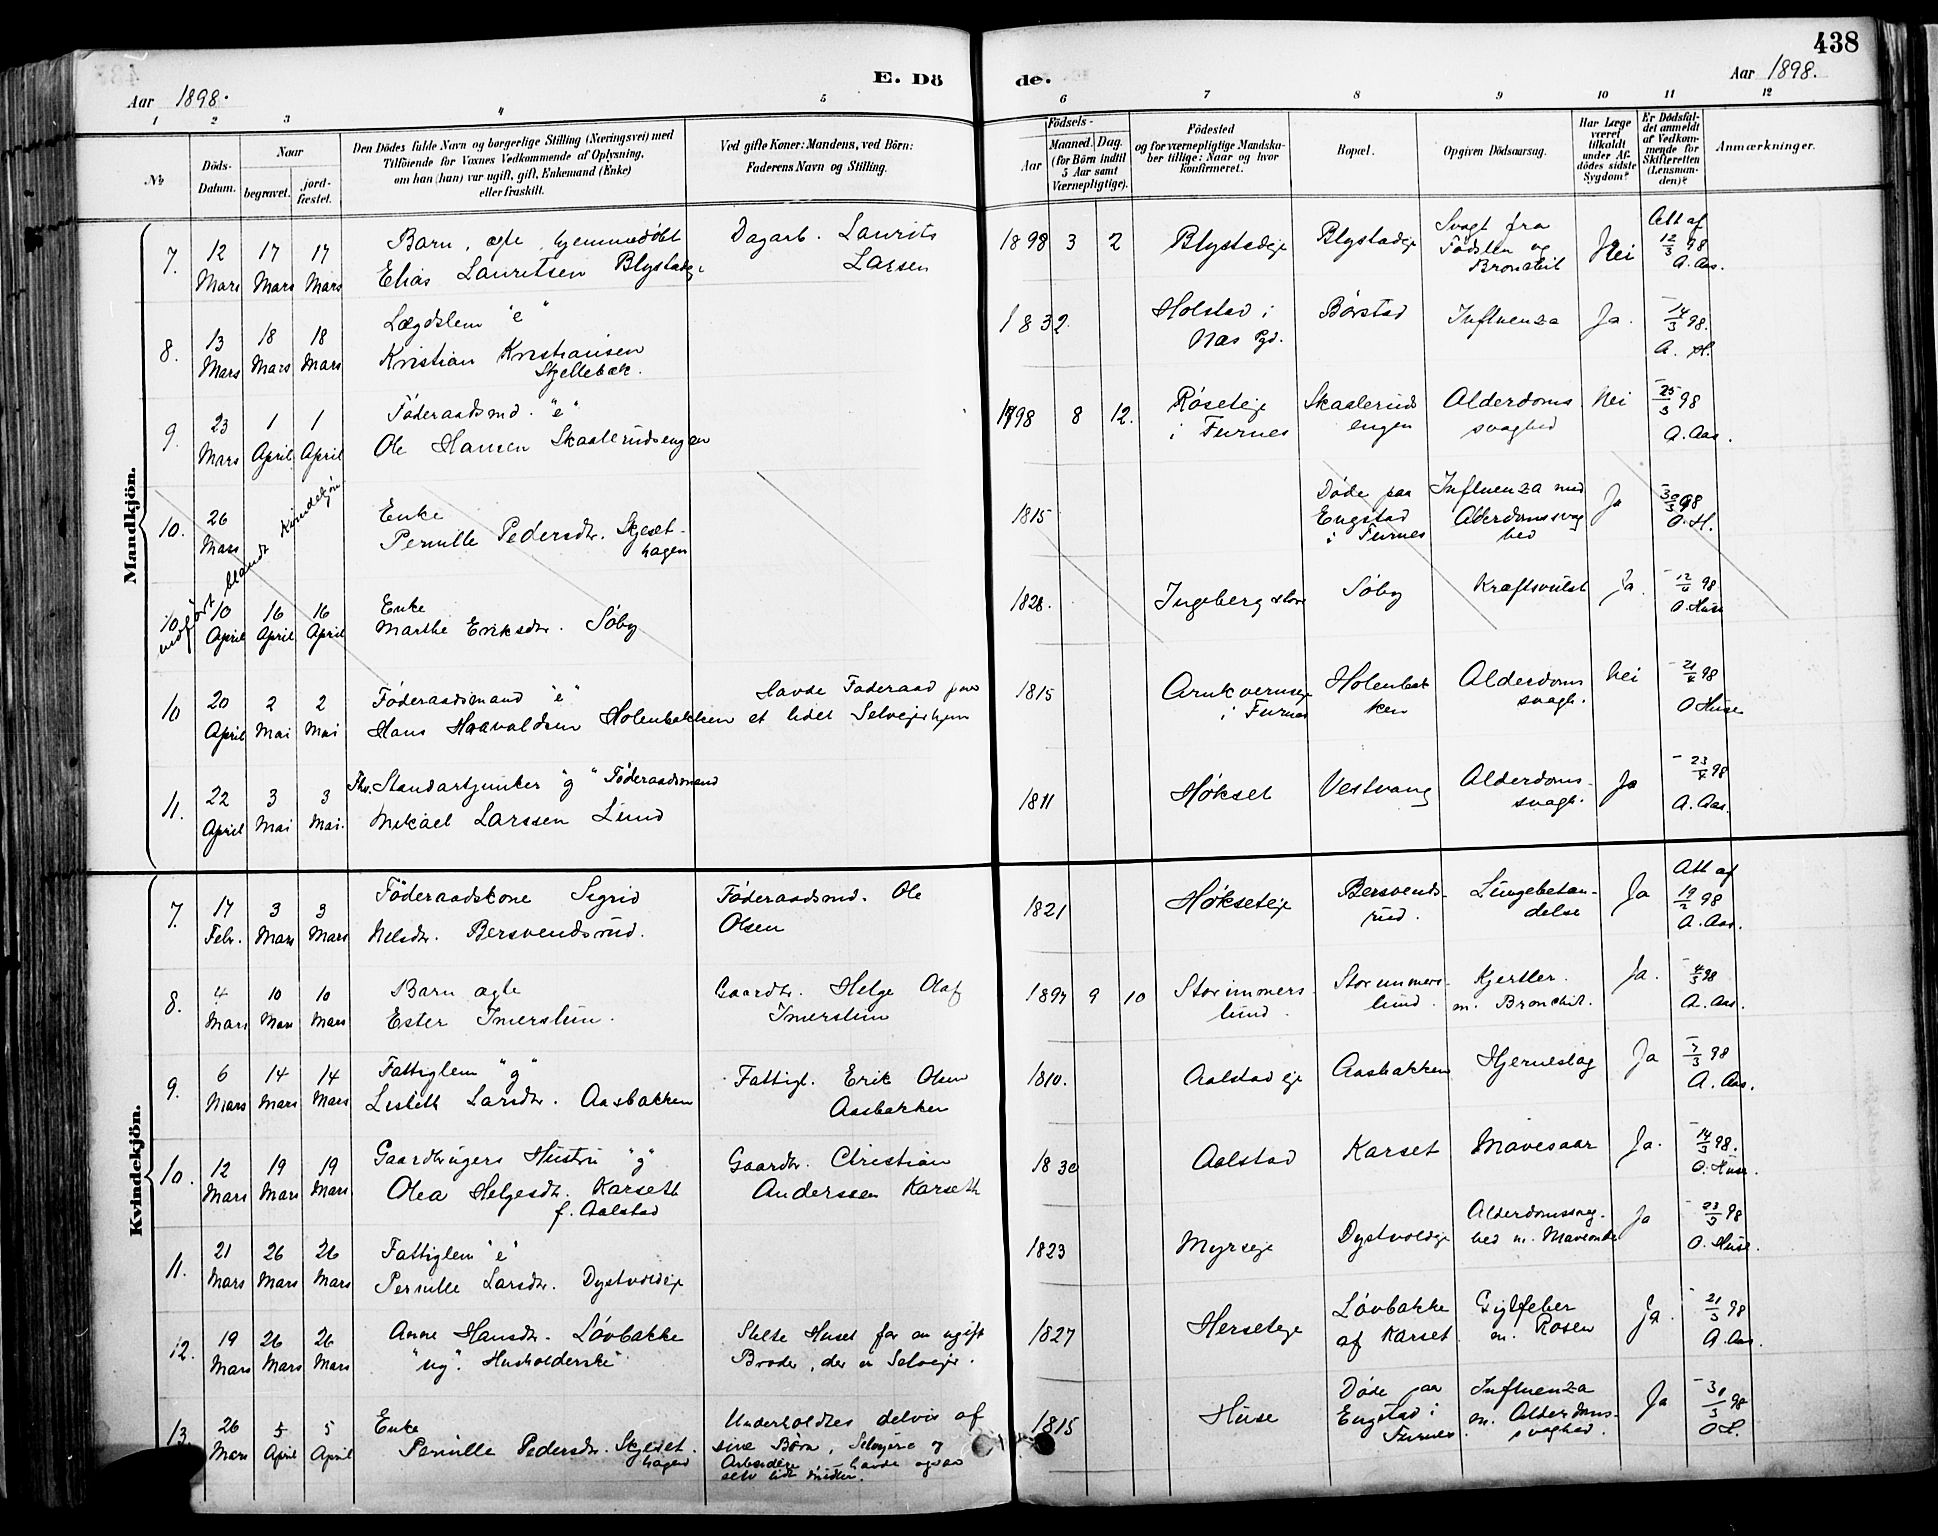 438
E. Dö de.
Aar 1898.
Aar 1898.
1 2 3 4 5 6 7 8 9 10 11 12
No
Döds-Datum.
Naar
begravet.
jordfæstet.
Den Dödes fulde Navn og borgerlige Stilling (Næringsvei) med
Tilföiende for Voxnes Vedkommende af Oplysning,
om han (hun) var ugift, gift, Enkemand (Enke)
eller fraskilt.
Ved gifte Koner: Mandens, ved Börn:
Faderens Navn og Stilling.
Födsels-
Aar
Maaned.
Dag.
(for Börn indtil
5 Aar samt
Værnepligtige).
Födested
og for værnepligtige Mandska-
ber tillige: Naar og hvor
konfirmeret.
Bopæl.
Opgiven Dödsaarsag.
Har Læge
været
tilkaldt
under Af-
dödes sidste
Sygdom?
Er Dödsfal-
det anmeldt
af Vedkom-
mende for
Skifteretten
(Lensman-
den)?
Anmærkninger.
Mandkjön.
7. 12 Mars 17 Mars 17 Mars
Barn, ægte, hjemmedøbt
Elias Lauritsen Blystadeje
Dagarb. Laurits
Larsen
1898 3 2 Blystadeje Blystadeje
Svagt fra
Fødslen og
Bronchit
Nei
Att af
12/3 98
A. Aas.
8. 13 Mars 18 Mars 18 Mars
Lægdslem "e"
Kristian Kristiansen
Skjellebæk.
1832. Holstad i
Næs Pgd.
Børstad Influenza Ja.
14/3 98.
A. H.
9. 23 Mars 1 April 1 April
Föderaadsmd. "e"
Ole Hansen Skaalerudsengen
1798 8 12. Røseteje
i Furnes
Skaalerud
engen
Alderdoms
svaghed
Nei
25/3 98
A. Aas.
10. 26 Mars
indført blandt Kvindekjøn
Enke
Pernille Pedersdtr. Skjeset-
hagen
1815
Døde paa
Engstad
i Furnes
Influenza med
Alderdomssvag
hed
Ja
30/3 98
O. H.
10 10 April 16 April 16 April
Enke
Marthe Eriksdtr. Søby
1828. Ingeberg store Søby Kræftsvulst Ja.
12/4 98
O. Huse
10 20 April 2 Mai 2 Mai
Föderaadsmand "e"
Hans Haavaldsen Holenbakken
Havde Føderaad paa
et lidet Selveierhjem
1815 Arnkvernseje
i Furnes
Holenbak
ken
Alderdoms
svagh.
Nei
21/4 98
O Huse
11. 22 April 3 Mai 3 Mai.
Fhv. Standartjunker "g" Föderaadsmand
Mikael Larssen Lund
1811 Høkset Vestvang
Alderdoms-
svagh.
Ja
23/4 98
A. Aas.
Kvindekjön.
7. 17 Febr. 3 Mars 3 Mars
Föderaadskone Sigrid
Nilsdtr. Bersvendsrud.
Föderaadsmd. Ole
Olsen
1821 Høkseteje
Bersvends-
rud.
Lungebetæn-
delse
Ja
Att af
19/2 98
A. Aas.
8. 4 Mars 10 Mars 10 Mars
Barn ægte
Ester Imerslun.
Gaardbr. Helge Olaf
Imerslun
1897 9 10 Storimmers-
lund.
Storimmers-
lund.
Kjertler.
m. Bronchit.
Ja.
4/3 98
A. Aas.
9. 6 Mars 14 Mars 14 Mars
Fattiglem "g"
Lisbeth Larsdtr. Aasbakken
Fattigl. Erik Olsen
Aasbakken
1810. Aalstadeje Aasbakken Hjerneslag Ja
7/3 98
A. Aas.
10. 12 Mars 19 Mars 19 Mars
Gaardbrugers Hustru "g"
Olea Helgesdtr. Karseth
f. Aalstad
Gaardbr. Christian
Anderssen Karseth
1830 Aalstad Karset Mavesaar Ja.
14/3 98.
O. Huse.
11. 21 Mars 26 Mars 26 Mars
Fattiglem "e"
Pernille Larsdtr. Dystvoldeje
1823 Myrseje Dystvoldeje
Alderdomssvag-
hed m. Maveonde
Ja
23/3 98
O. Huse.
12. 19 Mars 26 Mars 26 Mars
Anne Hansdtr. Løvbakke
"ug". Husholderske
Stelte Huset for en ugift
Broder, der er Selveier.
1827 Herseteje
Løvbakke
af Karset
Gigtfeber
m. Rosen
Ja.
21/3 98
A. Aas.
13. 26 Mars 5 April 5 April
Enke
Pernille Pedersdtr. Skjeset-
hagen
Underholdtes delvis af
sine Børn, Selveiere og
Arbeidere, – havde ogsaa
selv lidt Midler.
1815 Huse
Døde paa
Engstad i
Furnes.
Influenza
m. Alderdoms-
svaghed.
Ja
31/3 98
O H.